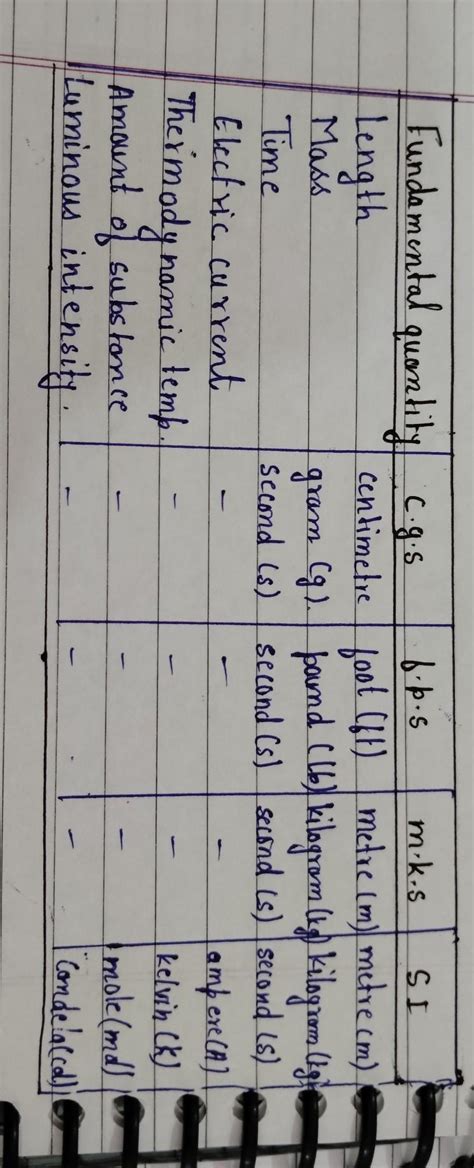 Fundamental quantity c.g.s f.p.s m.k.s SI
Length centimetre foot (ft) metre (m) metre (m)
Mass gram (g). pound (lb) kilogram (kg) kilogram (kg)
Time second (s) second (s) second (s) second (s)
Electric current - - - ampere (A)
Thermodynamic temp. - - - kelvin (K)
Amount of substance - - - mole (mol)
Luminous intensity. - - - Candela (cd)